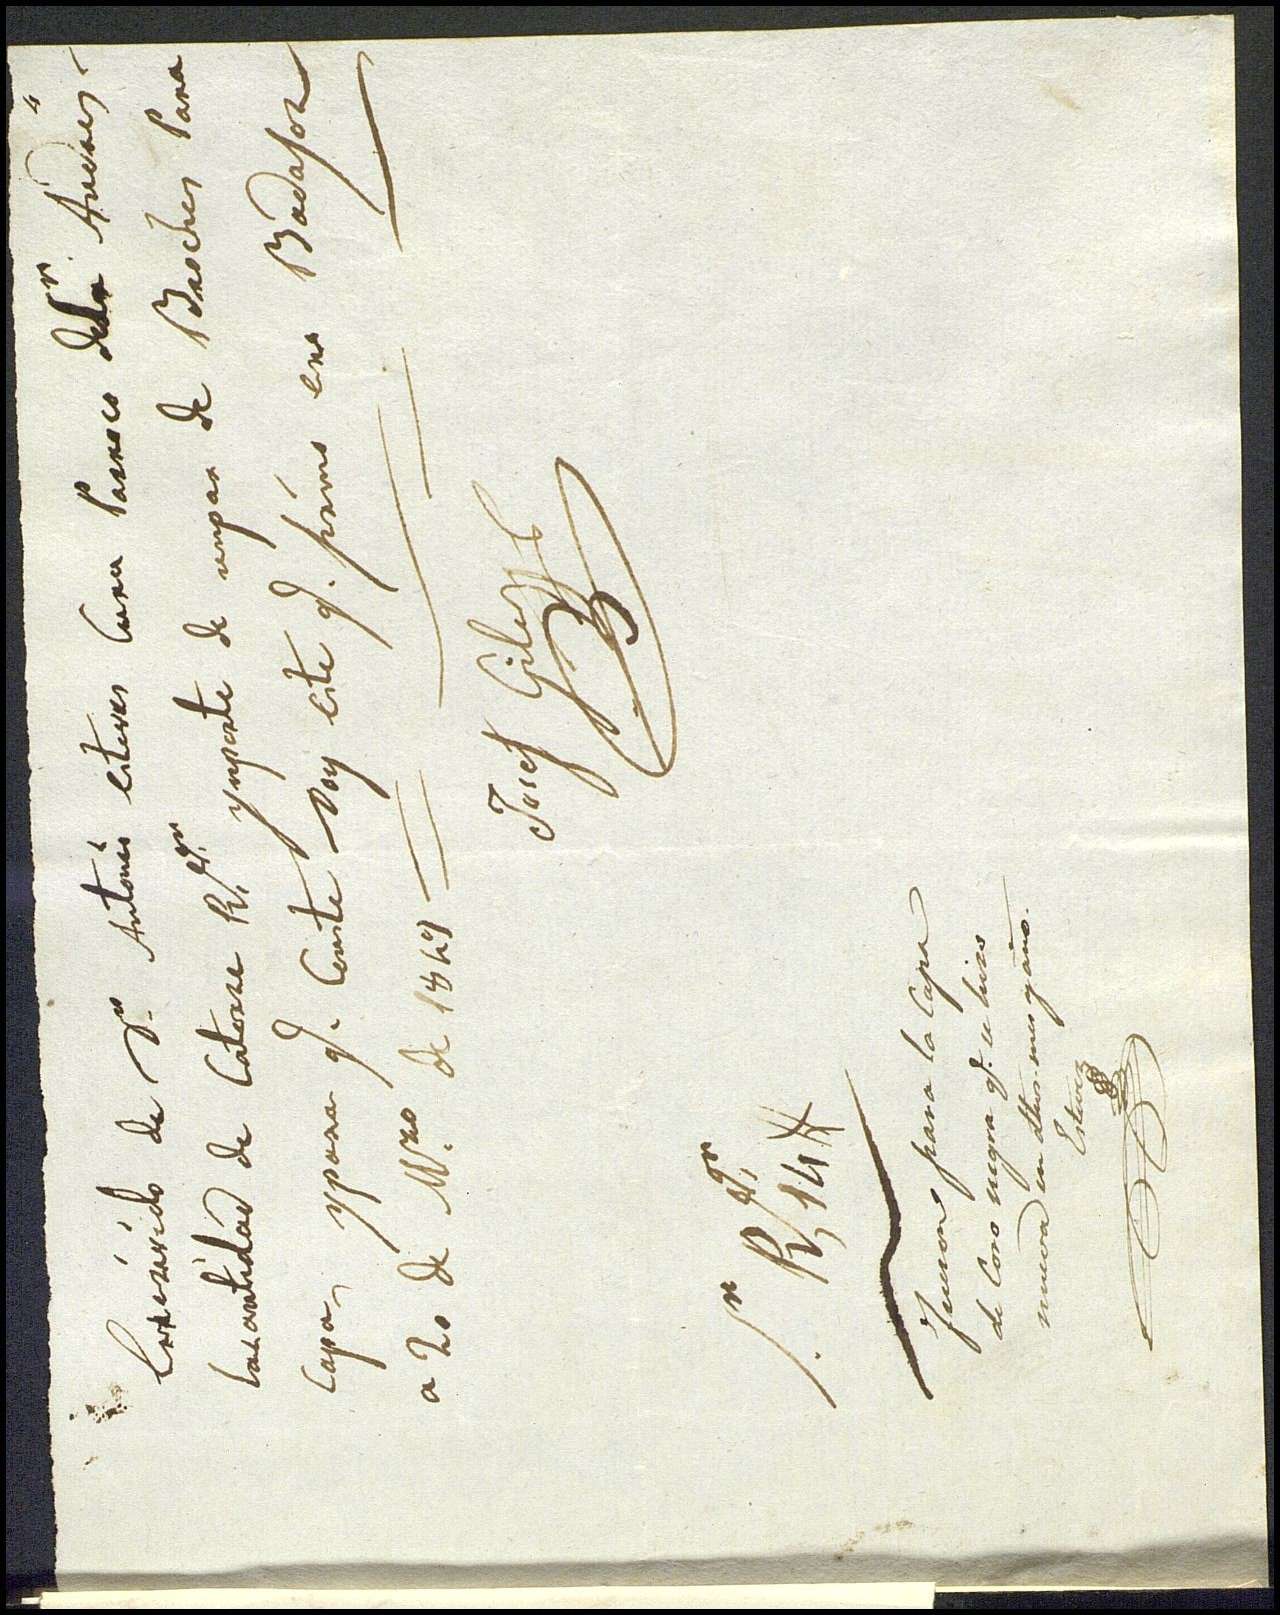 4
Erresivido de Dn. Antonio esteves Cura Parroco de Sn. Andres
lacantidad de Catorse Rs. vn. ymporte de unpar de Broches Para
Capa, ypara qe. Coñste Doy este qe. firmo en Badajoz
a 20 de Mzo. de 1849
Josef Giles
Sn Rs. vn. 14
Fueron para la Capa
de Coro negra qe. se hizo
nueva en dhos. mes y año.
Estevez